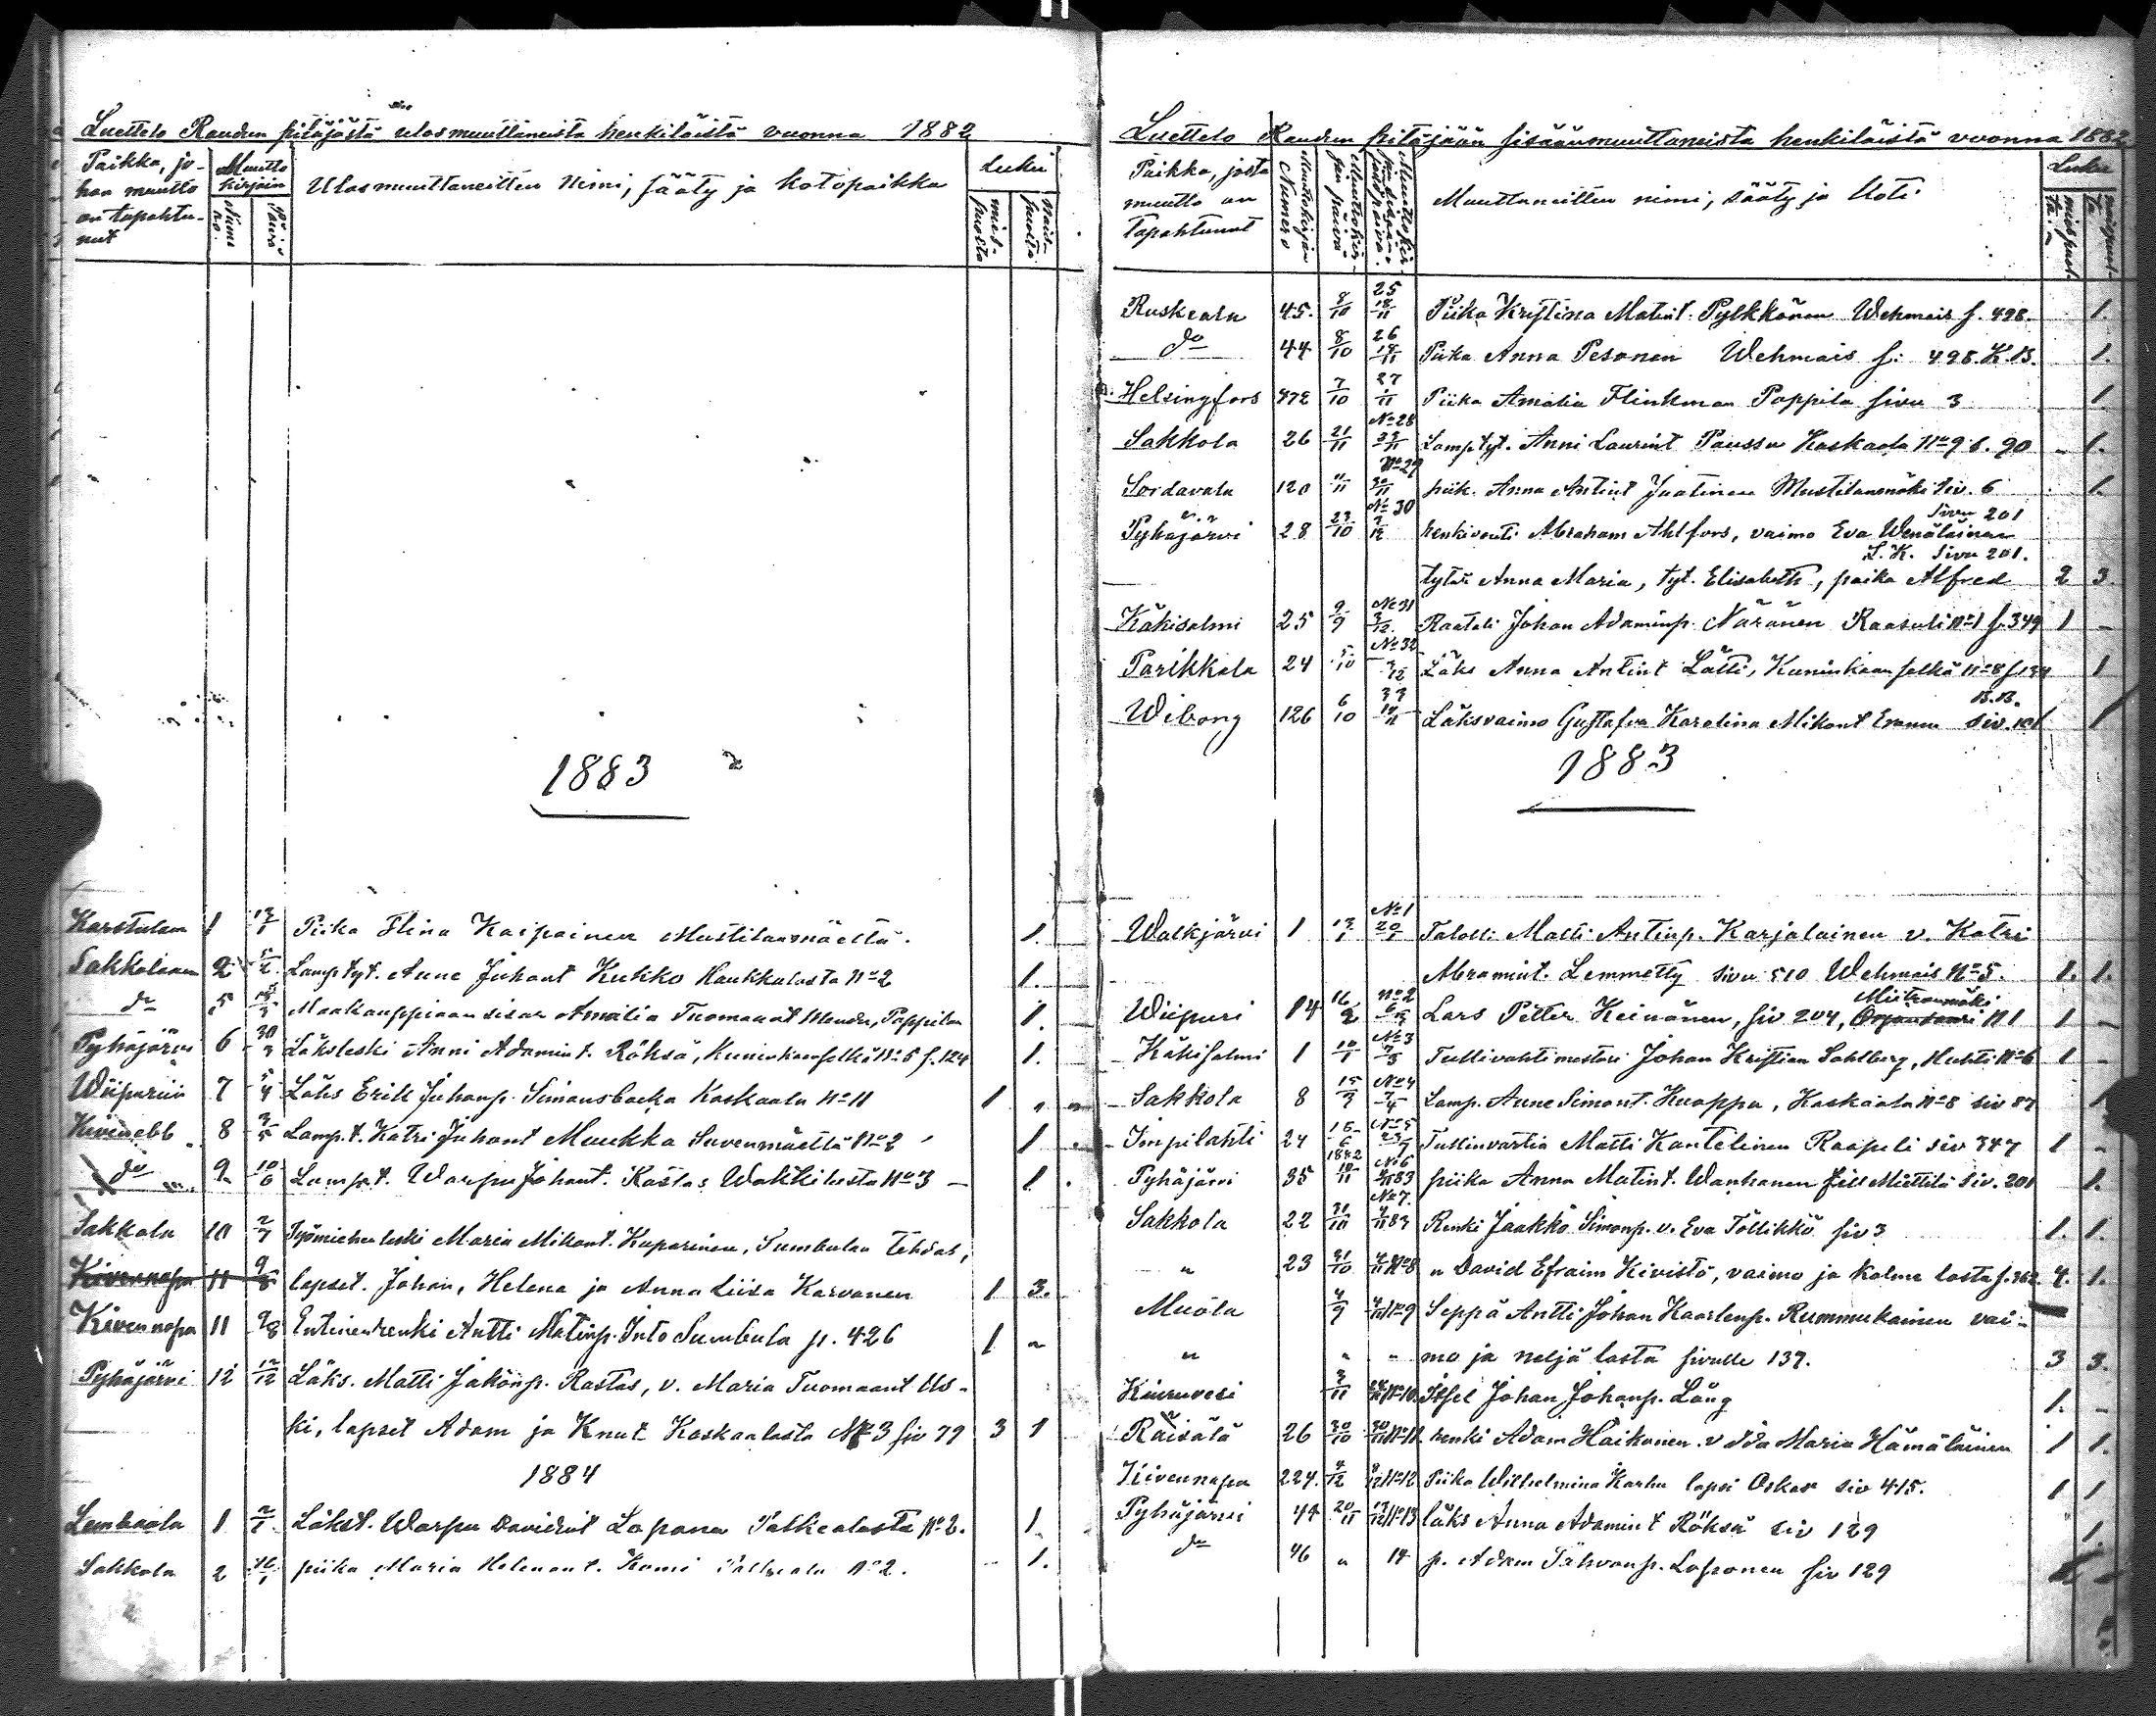 Luettelo Raudun pitäjästä ulosmuuttaneista henkilöistä vuonna 1882
Paikka, jo-
han muutto
on tapahtu-
nut
Muutto
kirjain
Nume
ro.
Päivä
Ulosmuuttaneitten nimi, sääty ja kotopaikka
Luku
mies-
puolta
nais-
puolta
1883
Karstulaan 1 Piika Elina Kaipainen Mustilanmäeltä. 1.
Sakkolaan 2 Lamp tyt. Anne Juhant Kukko Haukkalasta No 2 1.
do 5 Maakauppiaan sisar Amalia Tuomaant Pappilan 1.
Pyhäjärvi 6 30/3 Läksleski Anni Adamint. Röksä, Kuninkaanselkä No 5 s. 124 1.
Wiipuriin 7 5/4 Läks Erik Juhanp. Simansbacka Kaskaala No 11 1
Kivenebb 8 Lamp. t. Katri Juhant Muukka Suvenmäeltä No 2 1
do 9 10/6 Lamp. t. Warpu Johant. Rastas Wakkilasta No 3 1.
Sakkola 10 2/7 Työmiehen leski Maria Mikont. Kuparinen, Sumbulan Tehdas,
Kivennapa 11 9/8 lapset. Johan, Helena ja Anna Liisa Karvanen 1 3.
Kivennapa 11 9/8 Entinen renki Antti Matinp. Into Sumbula p. 426 1
Pyhäjärvi 12 12/12 Läks. Matti Jakönp. Rastas, v. Maria Tuomaant Us-
ki, lapset Adam ja Knut Kaskaalasta No 3 siv 79 3 1
1884
Lembaala 1 2/1 Läkst. Warpu Davidint Lapana Palkealasta No 2. 1.
Sakkola 2 16/1 piika Maria Helenant. Komi Palkeala No 2. 1.
Luettelo Raudun pitäjään sisäänmuuttaneista henkilöistä vuonna 1882
Paikka, josta
muutto on
tapahtunut
Muuttokirjan
Numero
Muuttokir-
jan päivä
Muuttaneitten nimi, sääty ja koti
Luku
miespuol-
ta
naispuol-
ta
25
Ruskeala 45. 8/10 18/11 Piika Kristina Matint. Pylkkönen Wehmais s. 498. 1.
26
do 44 8/10 18/11 Piika Anna Pesonen Wehmais s. 498. K.B. 1.
27
Helsingfors 472 7/10 Piika Amalia Flinkman Pappila sivu 3 1
No 28
Sakkola 26 21/11 Lamp tyt. Anni Laurint Paussu Kaskaala No 9 s. 90 1.
No 29
Sordavala 120 piik. Anna Antint Jaatinen Mustilanmäki siv. 6 1.
No 30 Sivu 201
Pyhäjärvi 28 23/10 henkivouti Abraham Ahlfors, vaimo Eva Wenäläinen
L.K. Sivu 201.
tytär Anna Maria, tyt. Elisabeth, poika Alfred 2 3
No 31
Käkisalmi 25 9/9 3/12 Raatali Johan Adaminp. Näränen Raasuli No 1 s. 349 1 -
No 32
Parikkala 24 5/10 Läks Anna Antint Lätti, Kuninkaanselkä No 8 s 134 1
33 B.B.
Wiborg 126 6/10 Läksvaimo Gustafva Karolina Mikont siv. 101 1
1883
No 1
Walkjärvi 1 13/1 20/1 Talolli. Matti Antinp. Karjalainen v. Katri
Abramint. Lemmetty sivu 510 Wehmais No 5. 1. 1.
No 2 Miitronmäki
Wiipuri 14 16/2 Lars Petter Keinänen, siv 204, No 1 1 -
No 3
Käkisalmi 1 10/1 Tullivahtimestari Johan Kristian Sahlberg, Huhti No 6 1 -
No 4
Sakkola 8 Lamp. Anne Simont. Kuoppa, Kaskaala No 8 siv 87 1
No 5
Impilahti 24 Tullinvartia Matti Kantelinen Raasuli siv 347 1 -
1882 No 6
Pyhäjärvi 35 piika Anna Matint. Wanhanen siv. 201 1.
No 7.
Sakkola 22 31/10 Renki Jaakko Simonp. v. Eva Töllikkö siv 3 1. 1.
" 23 31/10 No 8 " David Efraim Kivistö, vaimo ja kolme lasta s. 362 4. 1.
Muola 4/9 No 9 Seppä Antti Johan Kaarlenp. Rummukainen vai-
" " " mo ja neljä lasta sivulle 137. 3 3.
Kiuruvesi No 10 Itsel Johan Johanp. Lång 1. -
Räisälä 26 30/10 No 11 henki Adam Häikönen. v Ida Maria Hämäläinen 1 1.
Kivennapa 224. 4/12 No 12 Piika Wilhelmina Karhu lapsi Oskar siv 415. 1 1
Pyhäjärvi 44 20/11 No 13 läks Anna Adamint Röksä siv 129 1.
do 46 " 14 p. Adam Tahvanp. Loponen siv 129